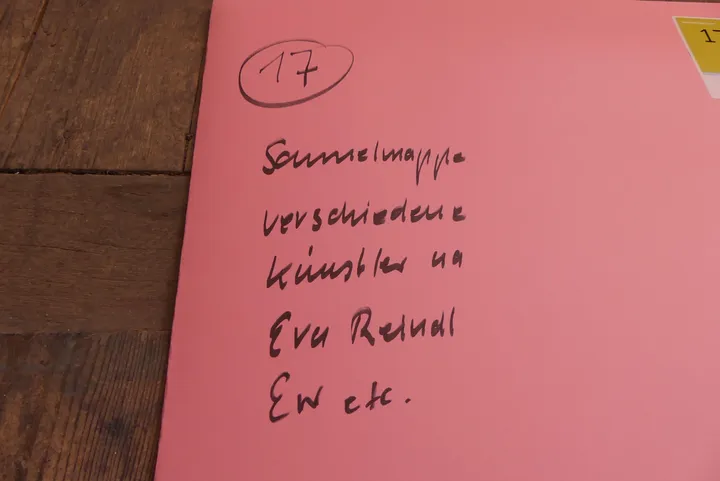 17
17
Sammelmappe
verschiedene
Künstler ua
Eva Reindl
EW etc.